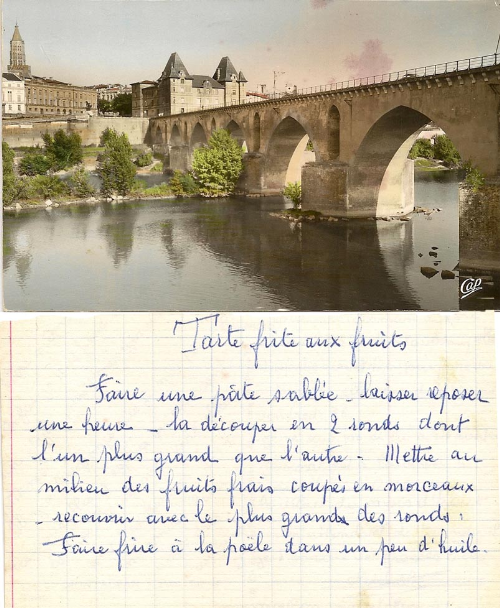 Cap
Tarte frite aux fruits
Faire une pâte sablée - laisser reposer
une heure - la découper en 2 ronds dont
l'un plus grand que l'autre - Mettre au
milieu des fruits frais coupés en morceaux
- recouvrir avec le plus grand des ronds.
Faire frire à la poële dans un peu d'huile.